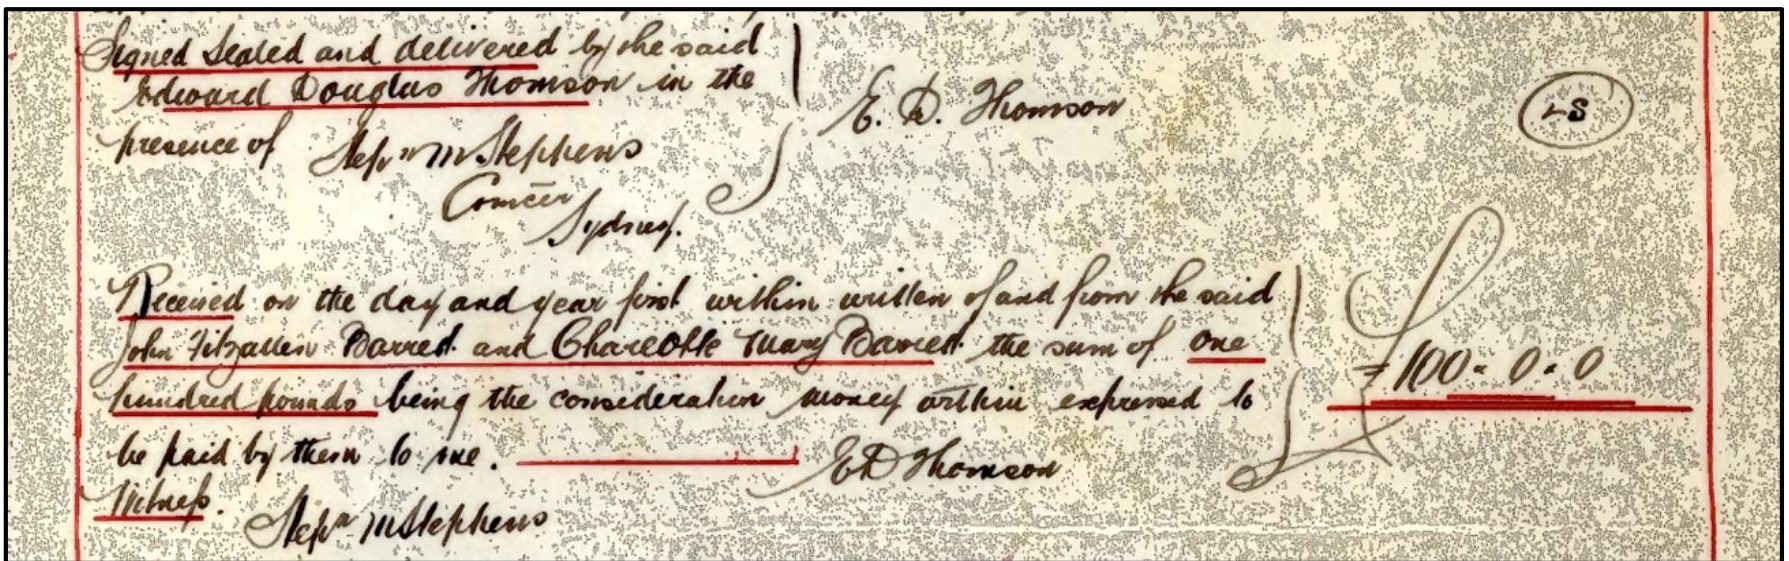 Signed Sealed and delivered by the said
Edward Douglas Thomson in the
presence of
E. D. Thomson
LS
Stepn M Stephens
Sydney.
Received on the day and year first within written of and from the said
John Fitzallen Barret and Charlotte Mary Barret the sum of One
hundred pounds being the consideration money within expressed to
£100 - 0 - 0
be paid by them to me.
E D Thomson
Witness.
Stepn M Stephens